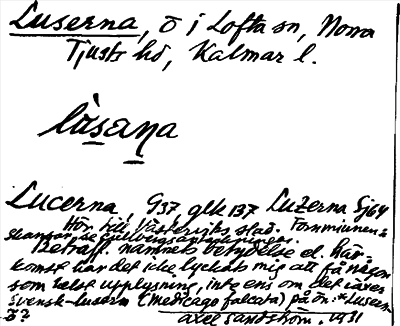 Luserna, ö i Lofta sn, Norra
Tjusts hd, Kalmar l.
làsaṇa
Lucerna, G37 glk 137 Luzerna Sj64
Hör till Västerviks stad. Fornminnen:
skansar, se
Beträff. namnets betydelse el. här-
komst har det icke lyckats mig att få någon
som helst upplysning, inte ens om det växer
svensk-lusern (Medicago falcata) på ön: *Lusern-
ö?
Axel Sandström. 1931